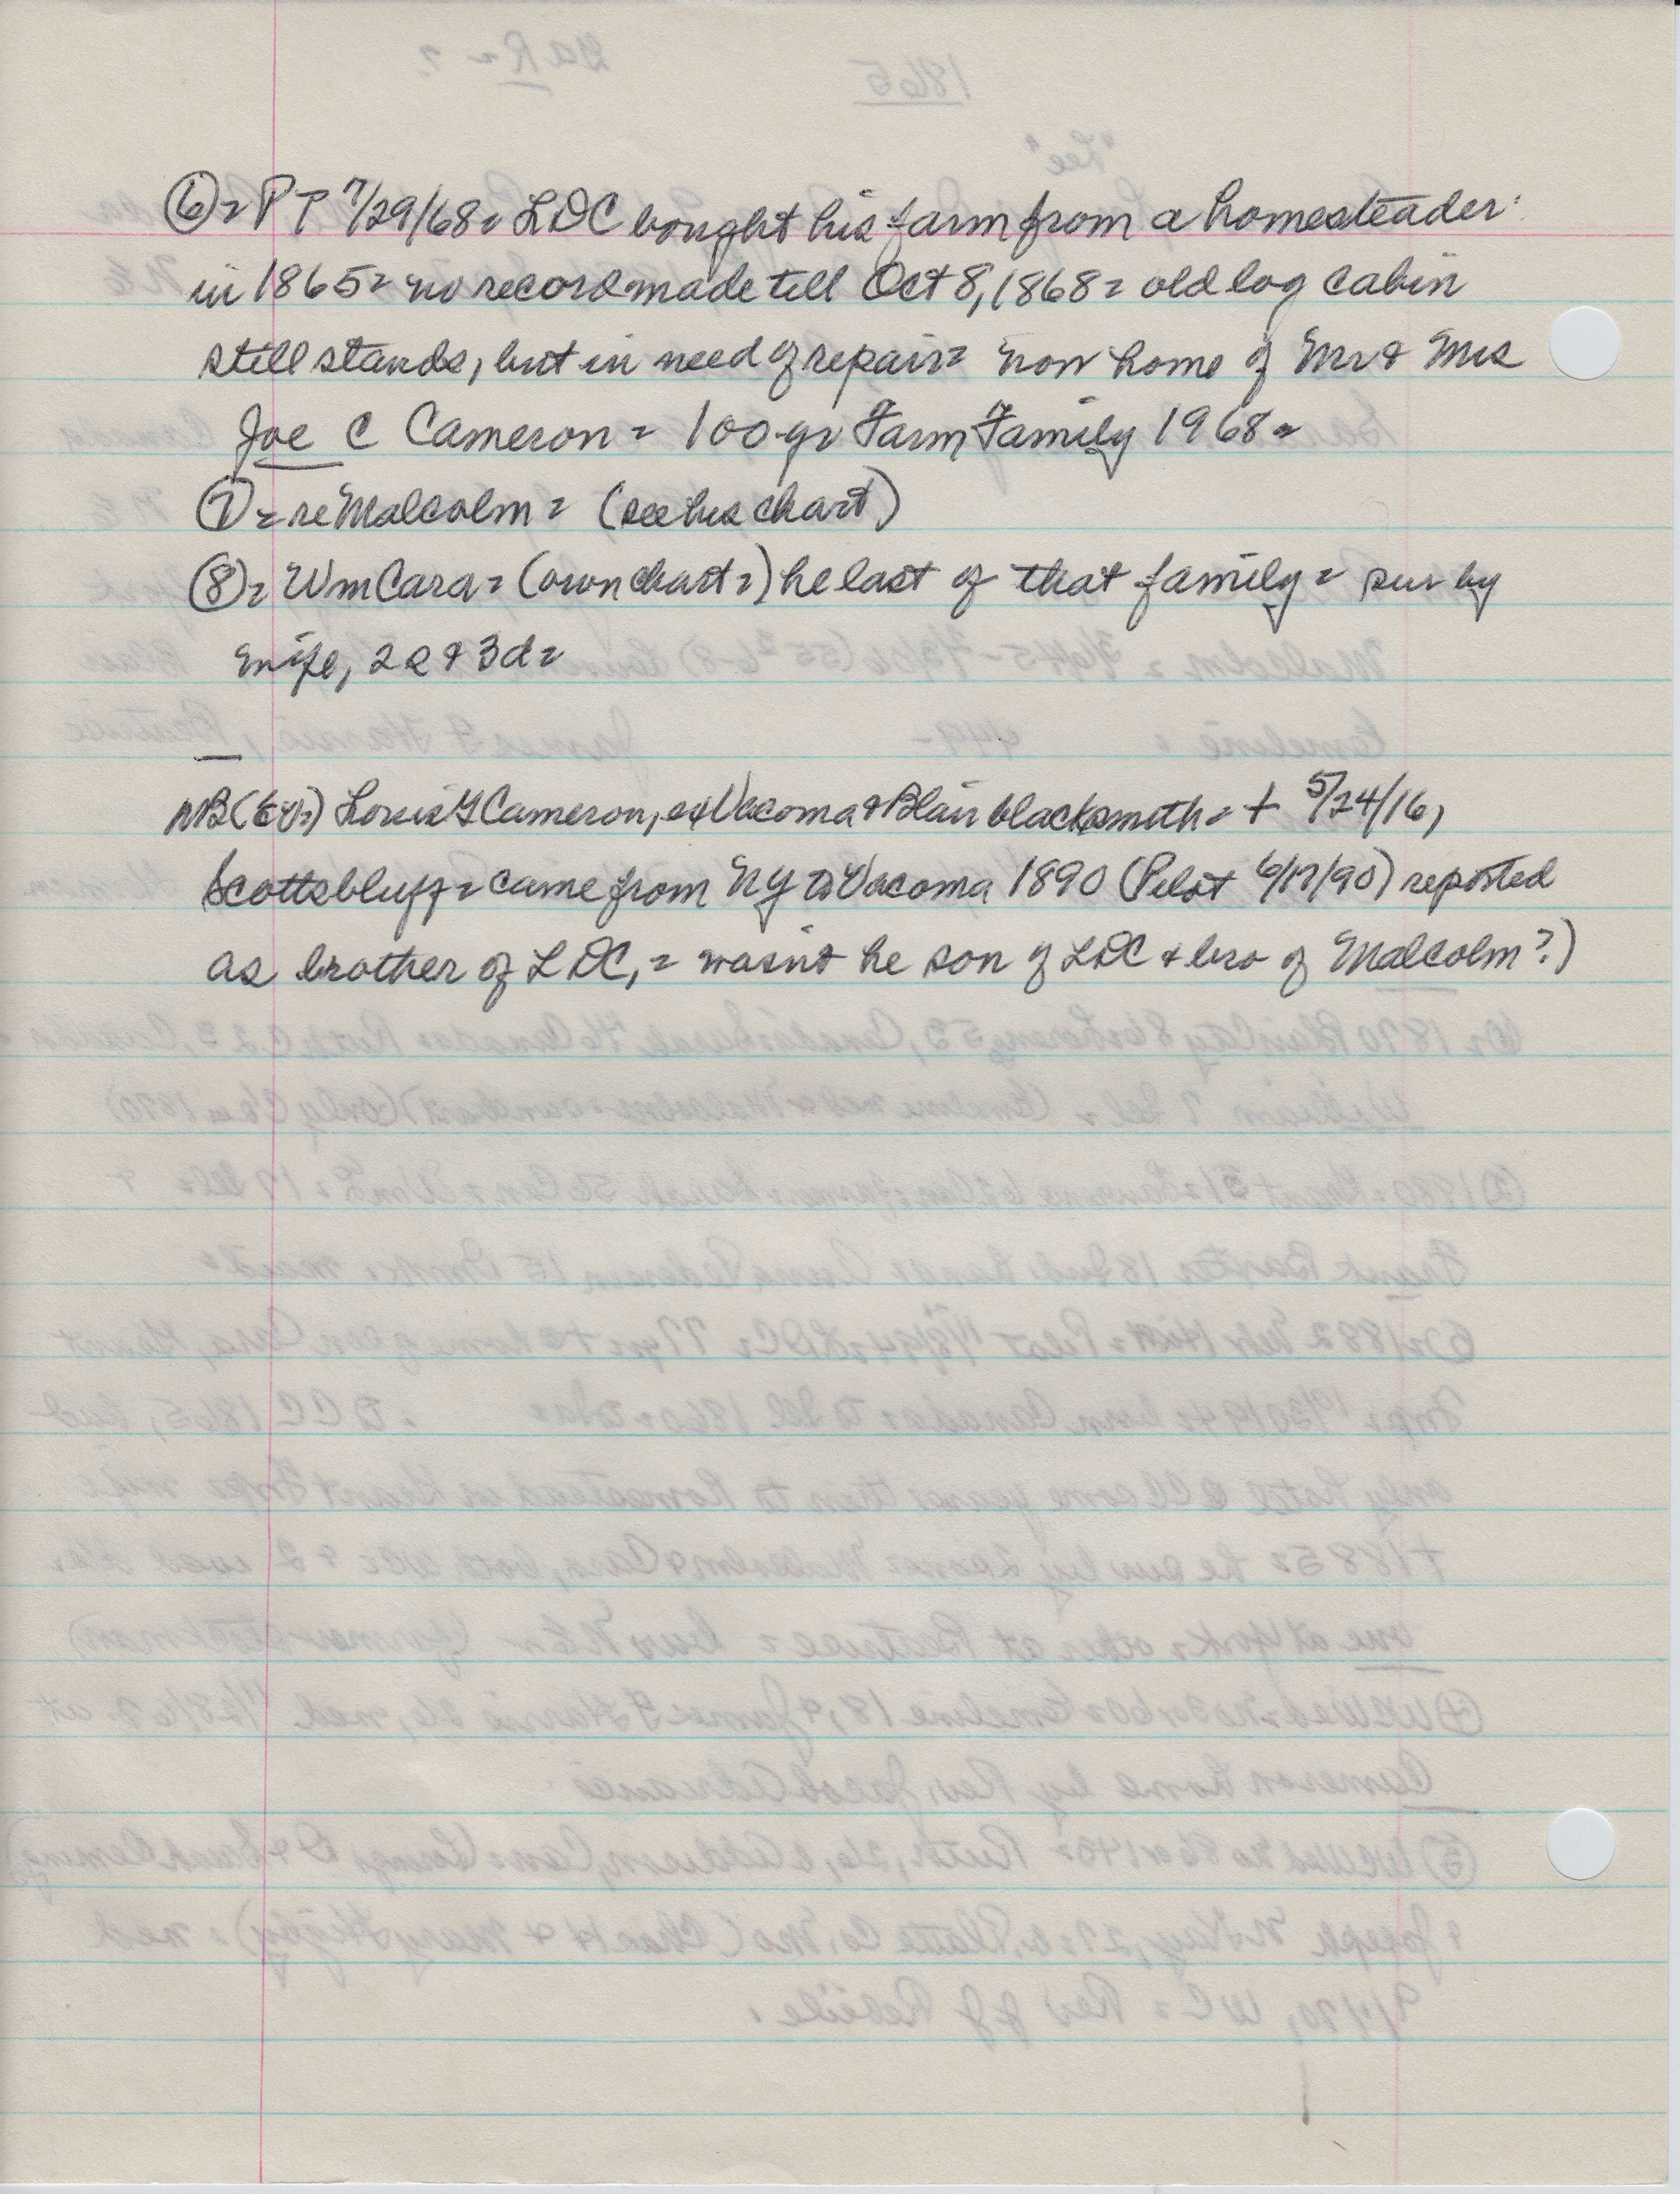 ⑥= PT 7/29/68= LDC bought his farm from a homesteader
in 1865= no record made till Oct 8, 1868= old log cabin
still stands, but in need of repair= now home of Mr & Mrs
Joe C Cameron= 100-yr Farm Family 1968=
⑦= re Malcolm= (see his chart)
⑧= Wm Cara= (own chart=) he last of that family= sur by
wife, 2 & 3d=
NB Louis G Cameron, ex Vacoma & Blair blacksmith= + 5/24/16,
Scottsbluff= came from NY to Vacoma 1890 (Pilot 6/19/90) reported
as brother of LDC,= wasn't he son of LDC & bro of Malcolm?)